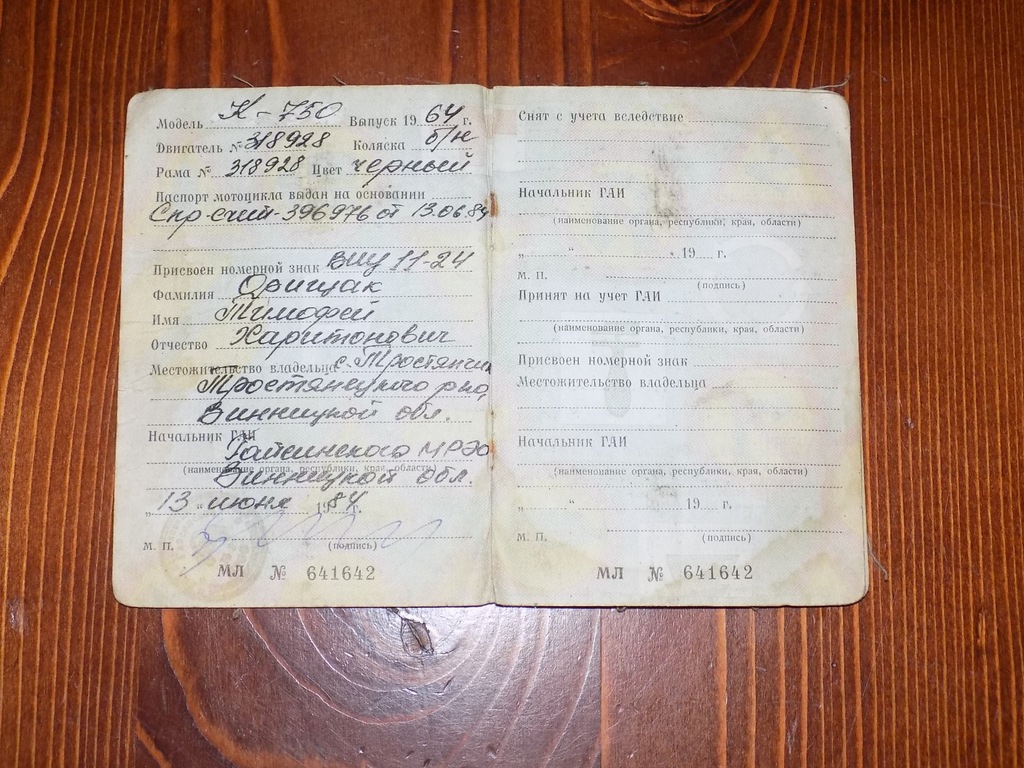 Модель К-750 Выпуск 1964 г.
Двигатель № 318928 Коляска б/н
Рама № 318928 Цвет черный
Паспорт мотоцикла выдан на основании
Спр-счит-396976 от 13.06.84
Присвоен номерной знак ВИЦ 11-24
Фамилия Орищак
Имя Тимофей
Отчество Харитонович
Местожительство владельца с. Тростянчик
Тростянецкого р-на,
Винницкой обл.
Начальник ГАИ
Гайсинского МРЭО
(наименование органа, республики, края, области)
Винницкой обл.
„13 “ июня 1984г.
М. П. (подпись)
МЛ № 641642
Снят с учета вследствие
Начальник ГАИ
(наименование органа, республики, края, области)
„ “ 19 г.
М. П. (подпись)
Принят на учет ГАИ
(наименование органа, республики, края, области)
Присвоен номерной знак
Местожительство владельца
Начальник ГАИ
(наименование органа, республики, края, области)
„ “ 19 г.
М. П. (подпись)
МЛ № 641642